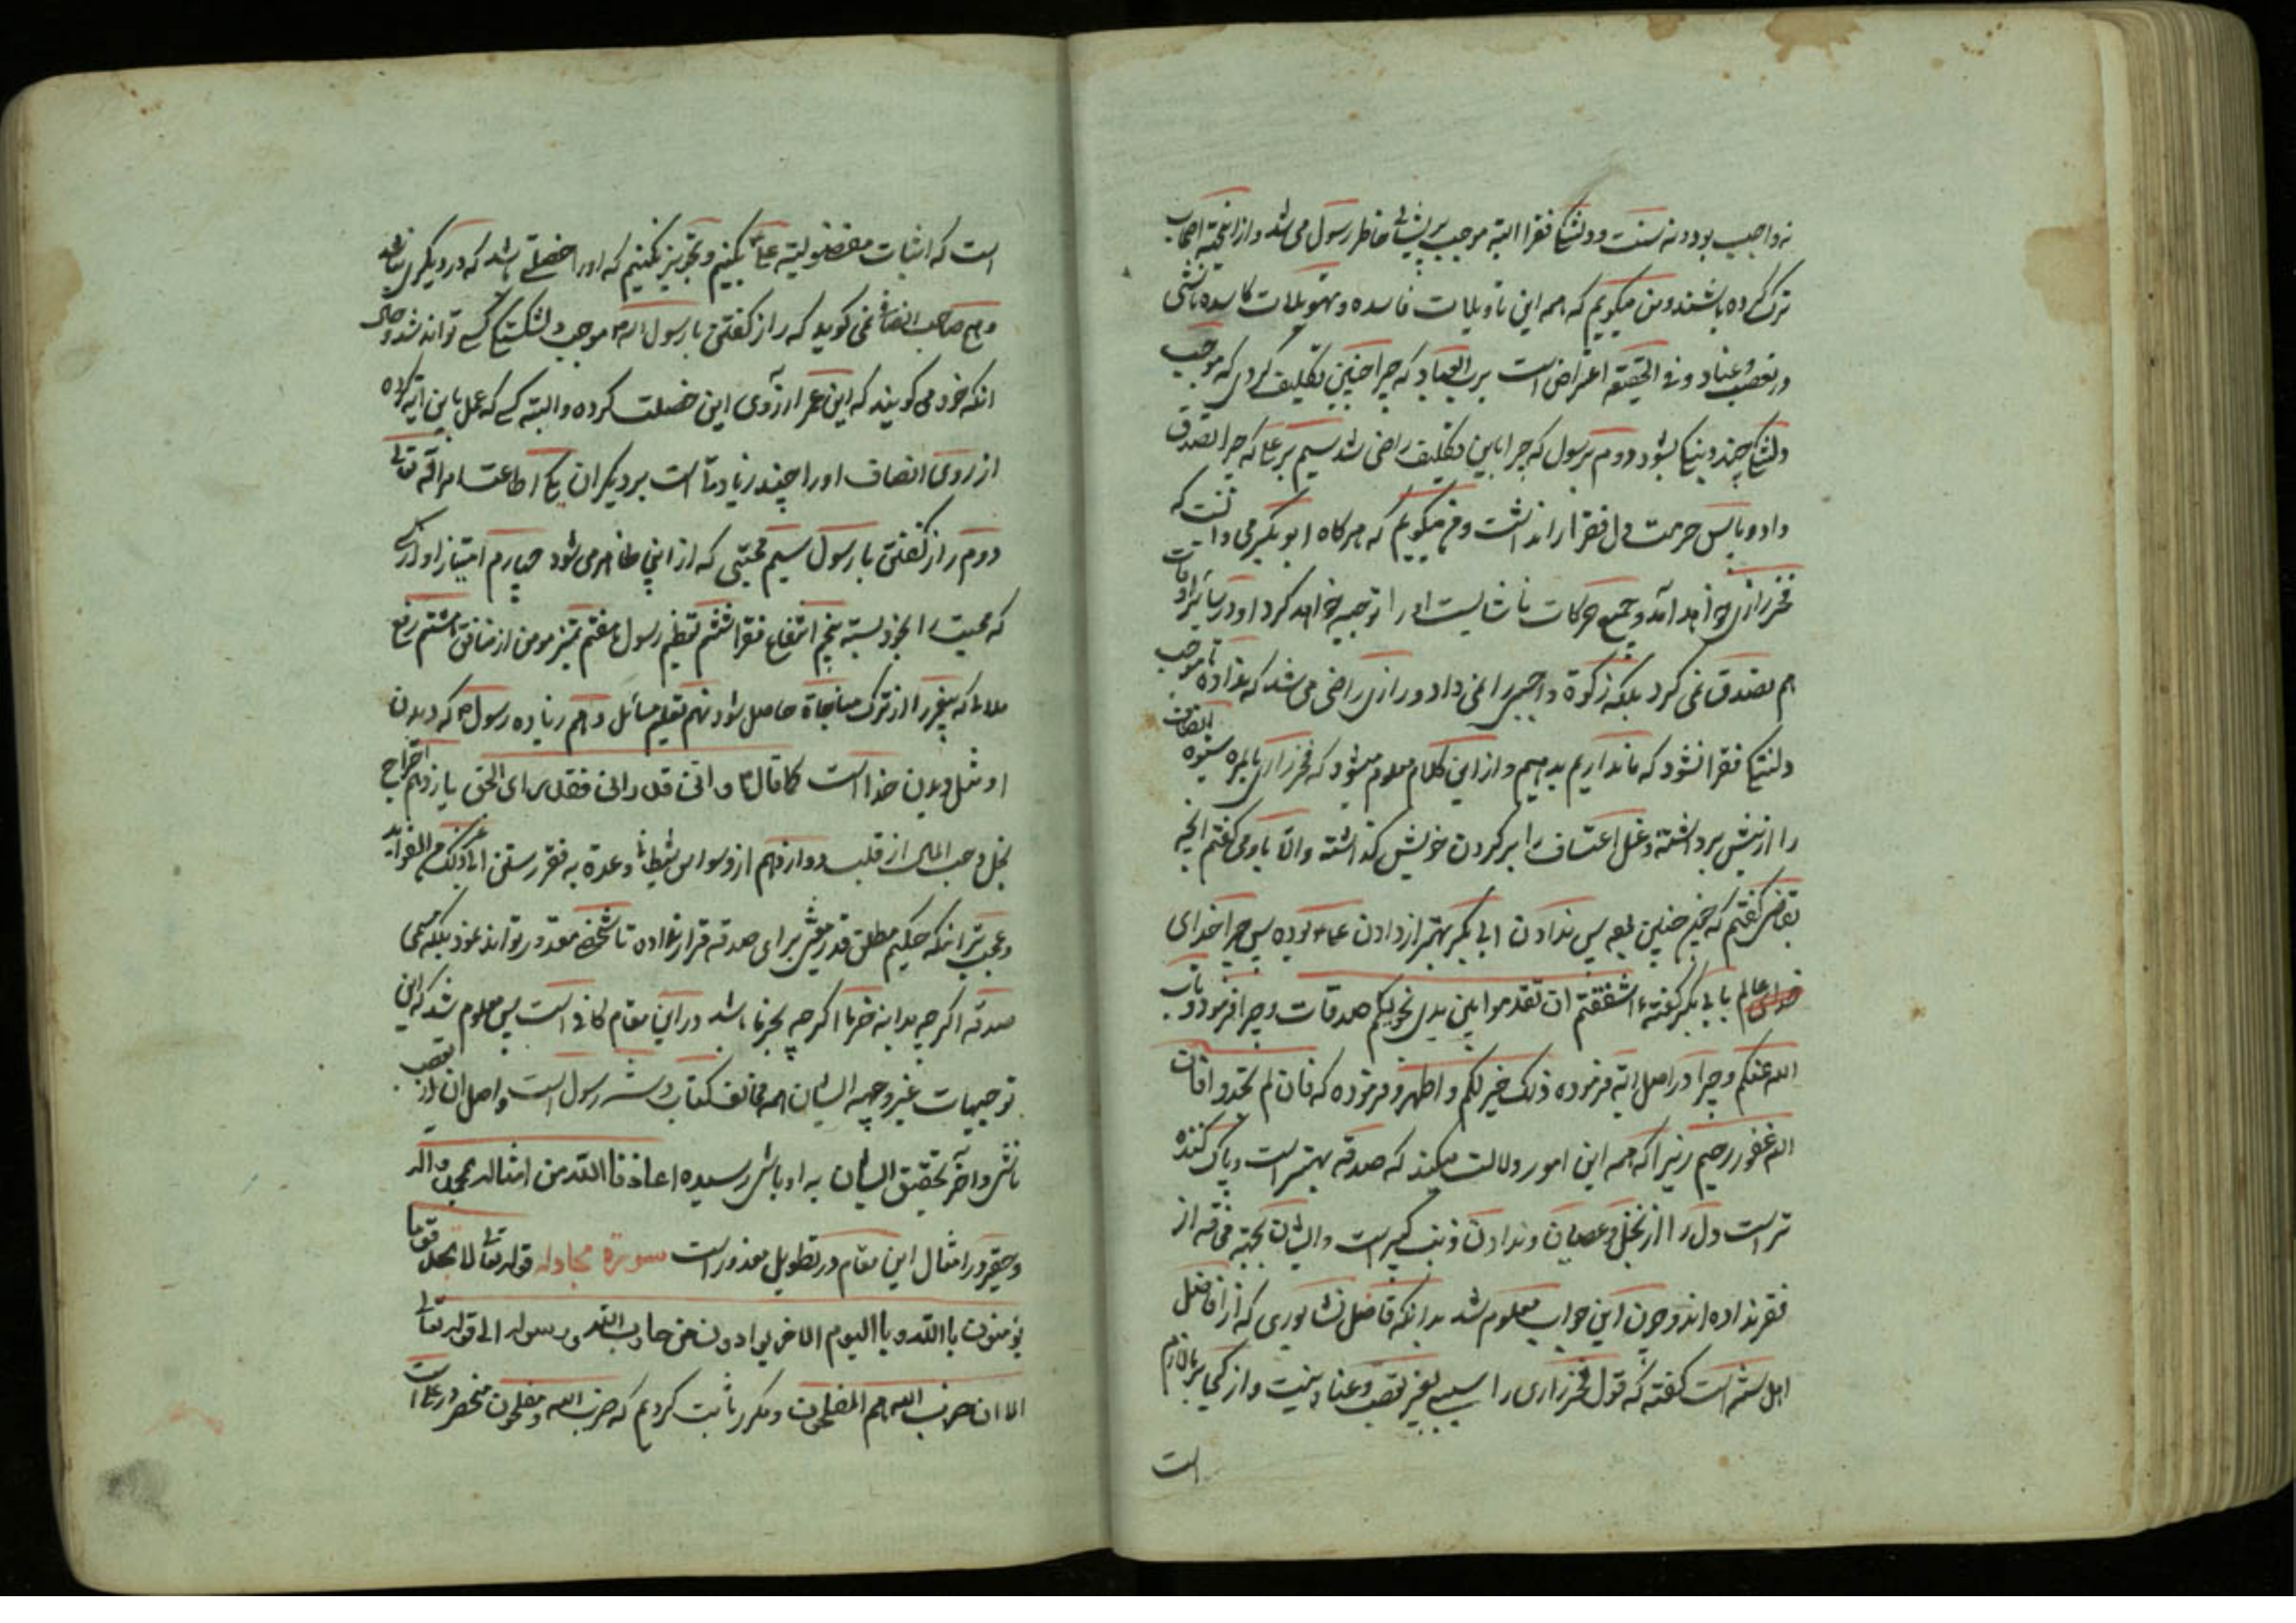 نه واجب بود و نه سنت و دلتنگی فقرا البته موجب پریشانی خاطر رسول می شد و از اینجهة اصحاب
ترک کرده باشند و من میگویم که همه این تاویلات فاسده و تمویلات کاسده ناشی
در تعصب و عناد و فی الحقیقه اعتراض است برب العباد که چرا چنین تکلیف کردی که موجب
دلتنگی چند دینی بشود دوم برسول که چرا باین تکلیف راضی شد سیم بر علی که چرا تصدق
داد و پاس حرمت دل فقرا را نداشت و فخ میگویم که هرگاه ابوبکر می دانست که
فخر رازی خواهد آمد و جمیع حرکات ناشایست او را توجیه خواهد کرد او در سایر اوقات
هم تصدق نمی کرد بلکه زکوة واجبی را نمی داد و رازی راضی می شد که نداده تا موجب
دلتنگی فقرا نشود که ما نداریم بدهیم و از این کلام معلوم میشود که فخر رازی بالمره شیوه انصاف
را از پیش برداشته و غل اعتساف را بر گردن خویش گذاشته والا باو می گفتم ای
بقاضی گفتم که خیر چنین پس ندادن ابی بکر بهتر از دادن علی بوده پس چرا خدای
عالم با ابی بکر گفته ءاشفقتم ان تقدموا بین یدی نجویکم صدقات و چرا فرمود و تاب
الله علیکم و چرا در اصل آیه فرموده ذلک خیر لکم و اطهر و فرموده که فان لم تجدوا فان
الله غفور رحیم زیرا که همه این امور دلالت میکند که صدقه بهتر است و پاک کننده
تر است دل را از بخل و عصیان و ندادن ذنب کبیر است و ایشان بجهة فاقه از
فقر نداده اند و چون این جواب معلوم شد بدانکه فاضل نشابوری که از افاضل
اهل سنة است گفته که قول فخر رازی را سببی بغیر تعصب و عناد نیست و از کجا بر ما لازم
است
است که اثبات مفضولیة علی بکنیم و تجویز نکنیم که او را فضیلتی باشد که در دیگری نباشد
و هیچ صاحب انصاف نمی گوید که راز گفتن با رسول الله موجب دلتنگی کسی تواند شد و حال
آنکه خود می گویند که ابن عمر آرزوی این خصلت کرده و البته کسی که عمل باین آیه کرده
از روی انصاف او را چند زیادتی است بر دیگران یکی اطاعت امر الله تعالی
دوم راز گفتن با رسول سیم محبتی که از این ظاهر می شود چهارم امتیاز او از کسی
که محبت را بخود بسته پنجم انتفاع فقرا ششم تعظیم رسول هفتم تمیز مومن از منافق هشتم رفع
ملالی که پیغمبر را از ترک مناجاة حاصل شود نهم تعلیم مسائل دهم زیاده رسول که دیدن
او مثل دیدن خدا است کما قال من رانی فقد رای الحق یازدهم اخراج
بخل و حب المال از قلب دوازدهم از وسواس شیطان و عدة به فقر رستن الی غیر ذلک من الفواید
و عجب تر آنکه حکیم مطلق قدر معینی برای صدقه قرار نداده تا شخص مقدور تواند نمود بلکه مسمی
صدقه اگر چه بدانه خرما اگر چه بجزء باشد در این مقام کافی است پس معلوم شد که این
توجیهات غیر وجیهه ایشان همه مخالف کتاب و سنة رسول است و اصل آن از تعصب
ناشی و آخر تحقیق ایشان به اوباشی رسیده اعاذنا الله من امثاله بمحمد و اله
و حقیر در امثال این مقام در تطویل معذور است سورة مجادله قوله تعالی لا تجد قوما
یومنون بالله و بالیوم الاخر یوادون من حاد الله و رسوله الی قوله تعالی
الا ان حزب الله هم المفلحون و مکرر ثابت کردیم که حزب الله و مفلحون منحصر در علی است